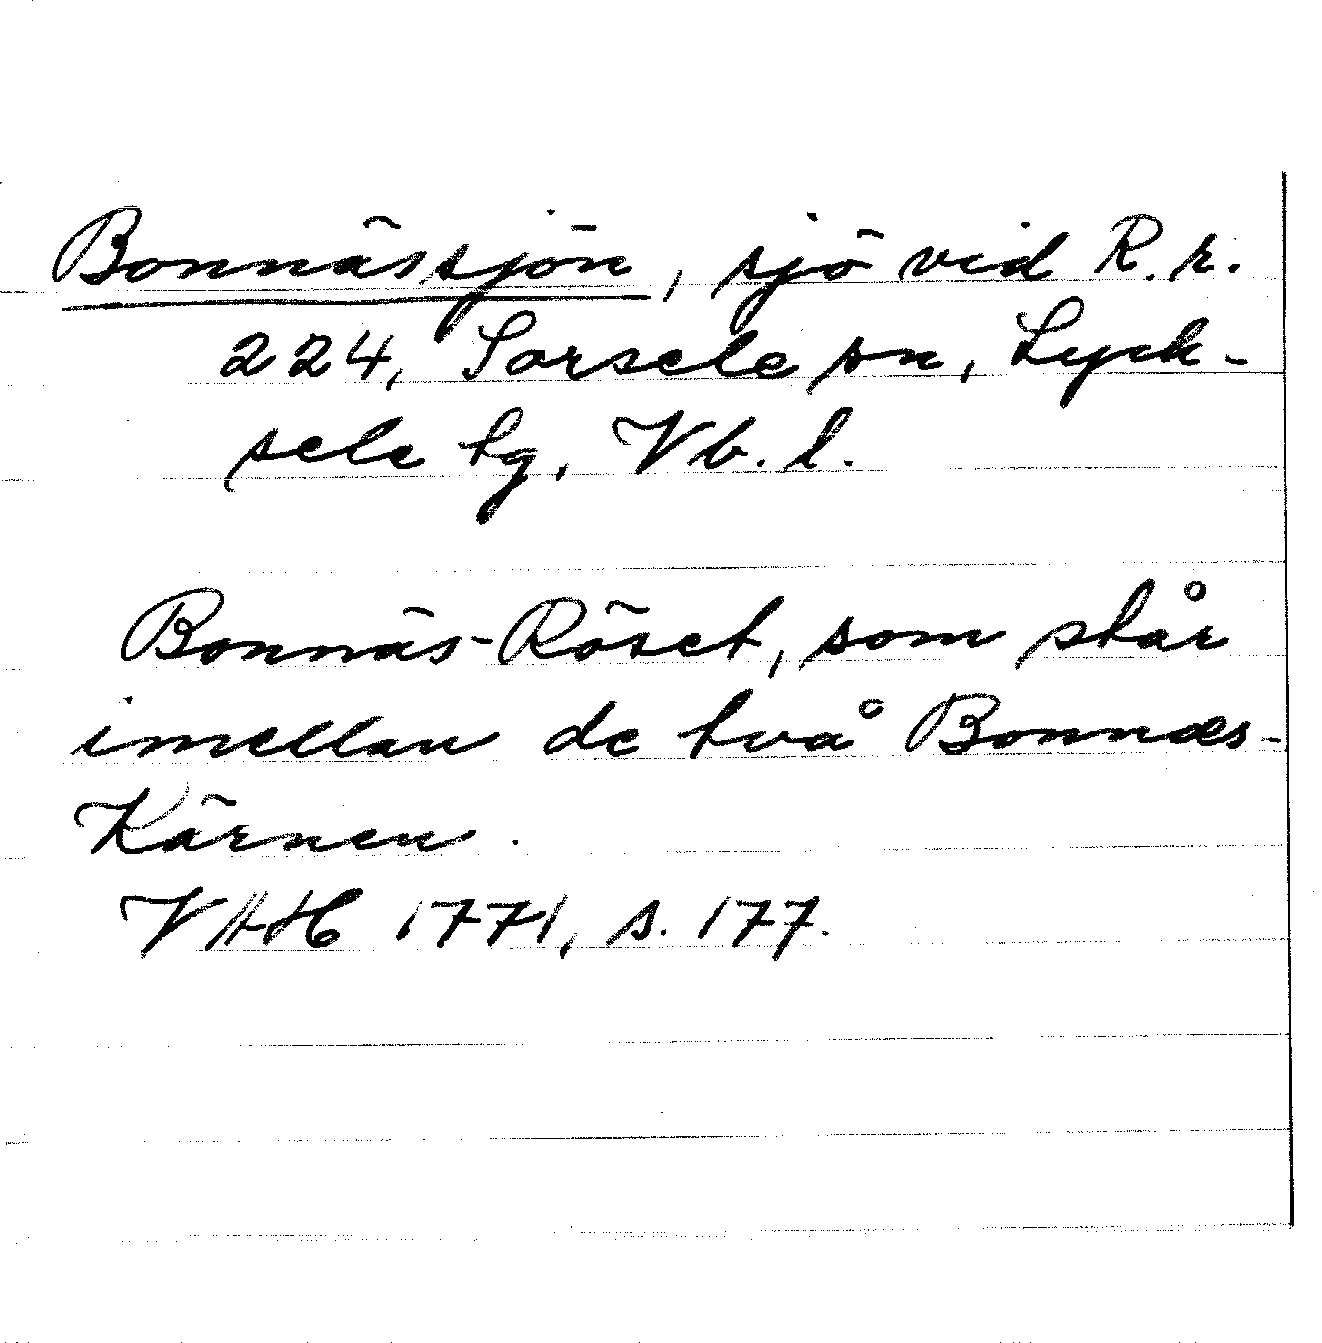 Bonnässjön, sjö vid R.r.
224, Sorsele sn, Lyck-
sele lg, Vb. l.
Bonnäs-Röset, som står
imellan de två Bonnæs-
Kärnen.
VHH 1771, s. 177.